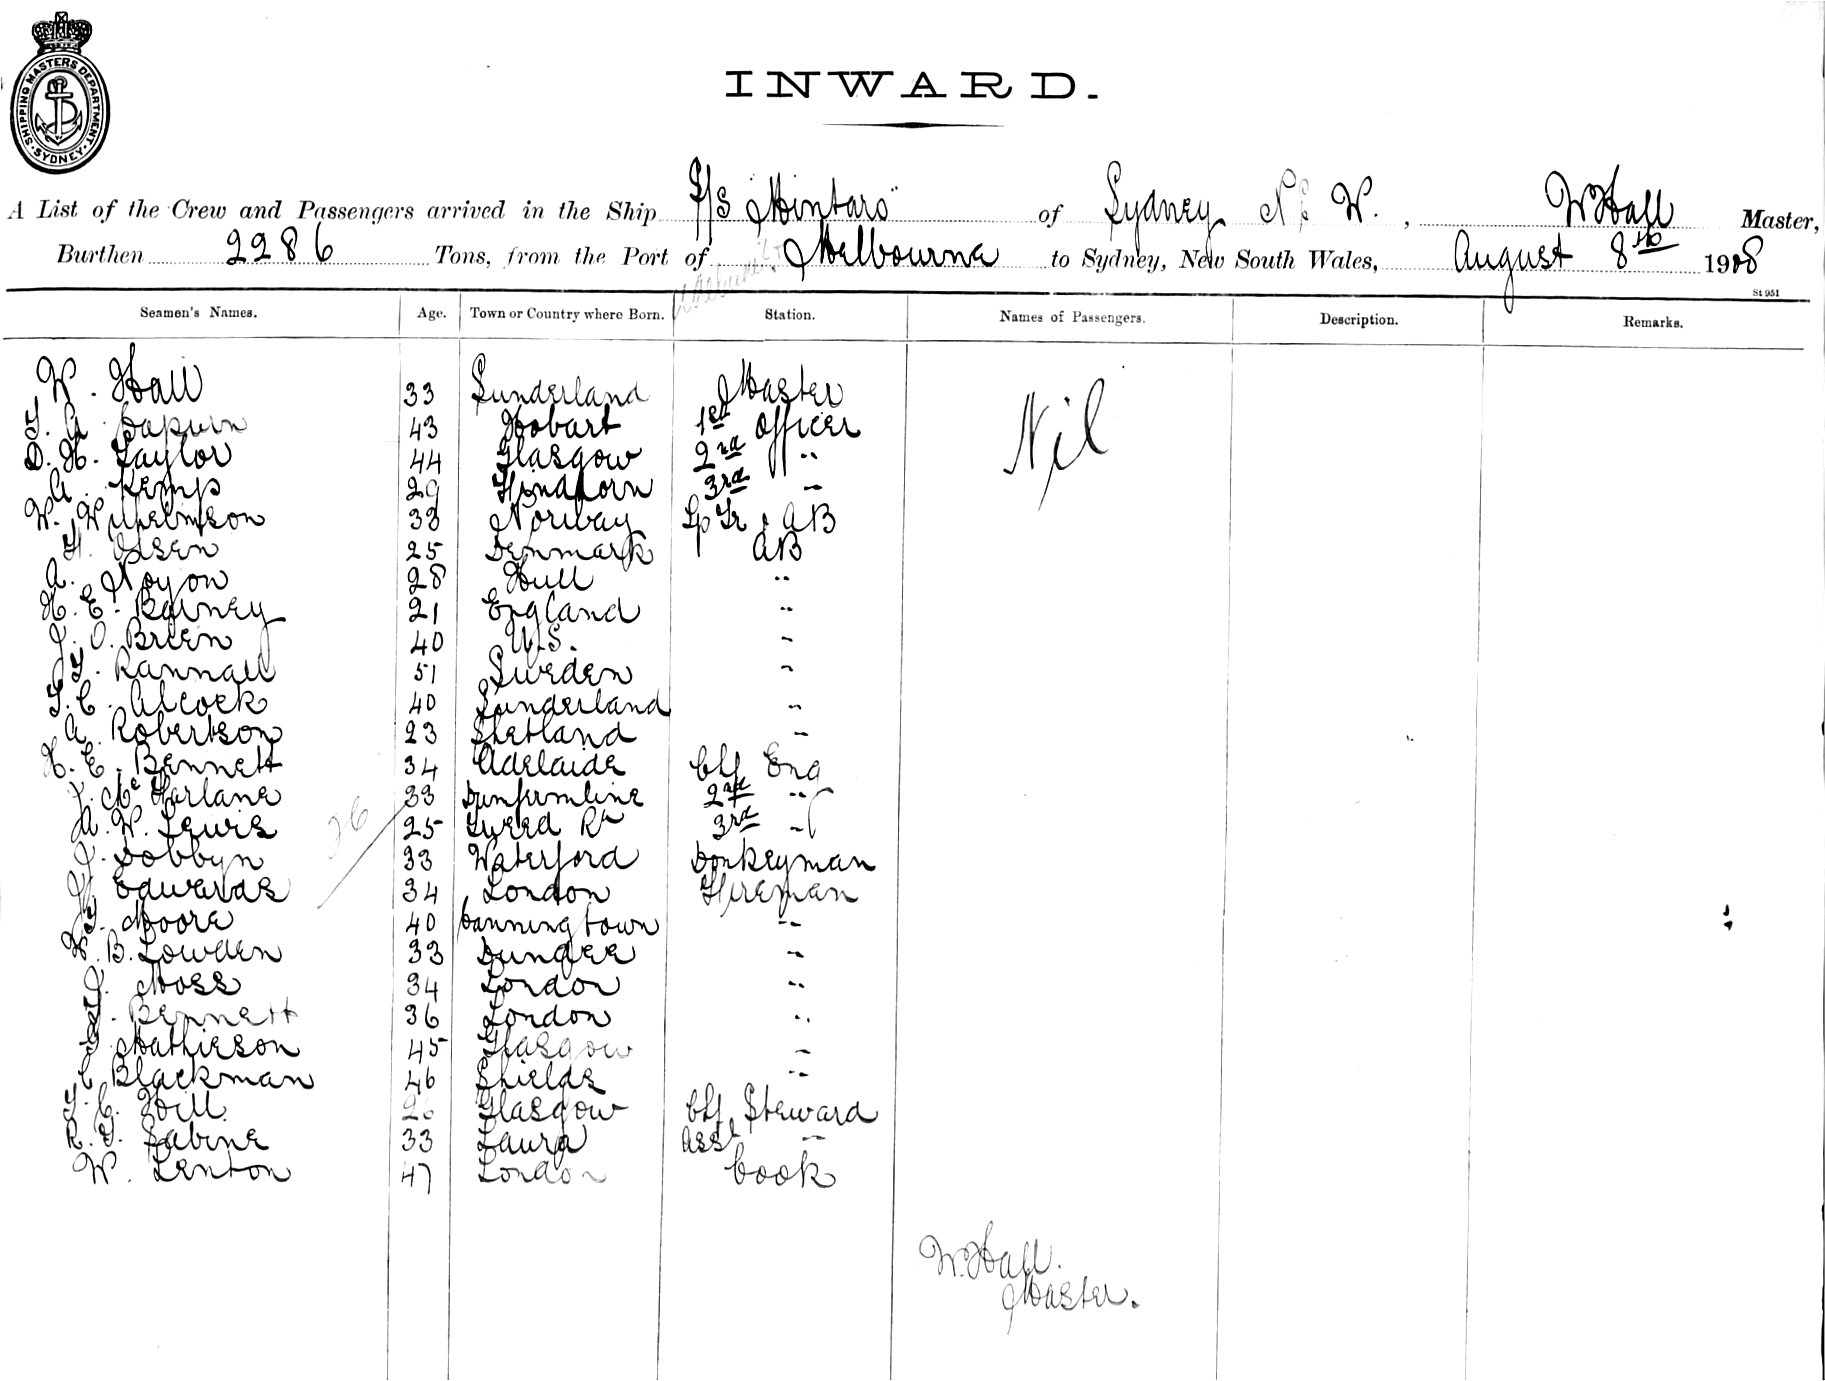 SHIPPING MASTERS DEPARTMENT. SYDNEY.
INWARD.
A List of the Crew and Passengers arrived in the Ship S/S "Mintaro" of Sydney N S W., W Hall Master,
Burthen 2286 Tons, from the Port of Melbourne to Sydney, New South Wales, August 8th 1908
St 951
Seamen's Names. Age. Town or Country where Born. Station. Names of Passengers. Description. Remarks.
W. Hall 33 Sunderland Master
43 Hobart 1st Officer
D. H. Taylor 44 Glasgow 2nd "
Nil
A. Kemp 29 3rd "
W. Wilhelmson 33 Norway Lp Tr & AB
H. Olsen 25 Denmark AB
A. Noyon 28 Hull "
H. E. Barney 21 England "
J. O. Brien 40 U.S. "
Rannall 51 Sweden "
T. C. Alcock 40 Sunderland "
A. Robertson 23 Shetland "
H. E. Bennett 34 Adelaide Chf Eng
J. Mc Farlane 33 Dunfermline 2nd "
A. W. Lewis 25 Tweed Rr 3rd "
26
J. Dobbyn 33 Waterford Donkeyman
J. Edwards 34 London Fireman
Moore 40 Canningtown "
W. B. Lowden 33 Dundee "
J. Moss 34 London "
J. Bennett 36 London "
Mathieson 45 Glasgow "
C. Blackman 46 Shields "
T. C. Hill 26 Glasgow Chf Steward
R. T. Sabine 33 Laura Asst "
W. Lenton 47 London Cook
W. Hall.
Master.